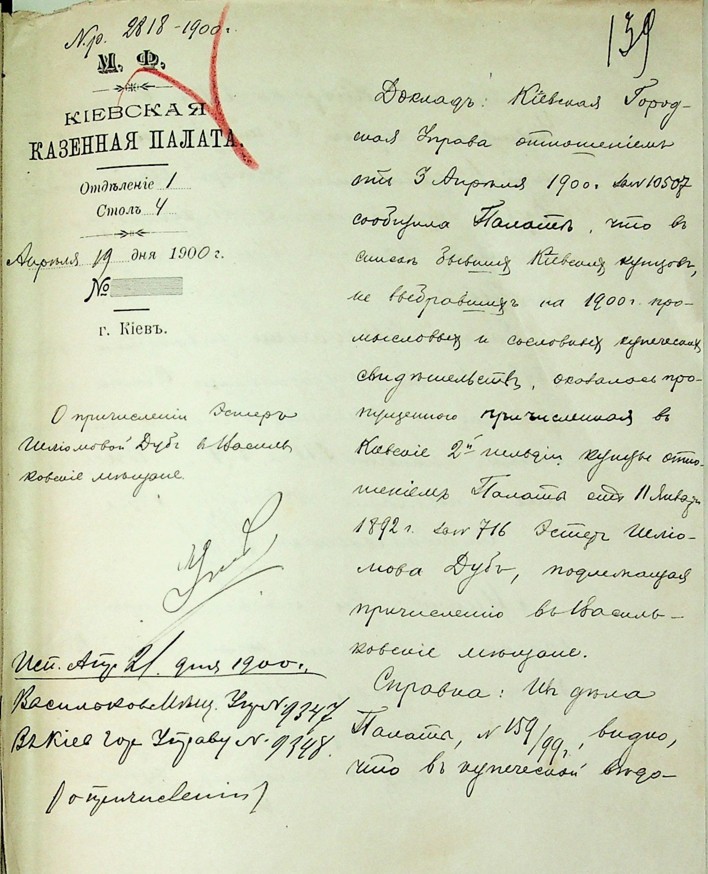 Нр. 2818-1900г.
139
М. Ф.
КІЕВСКАЯ
КАЗЕННАЯ ПАЛАТА.
Отдѣленіе 1
Столъ 4
Апрѣля 19 дня 1900 г.
№
г. Кіевъ.
О причисленіи Эстеръ
Шліомовой Дубъ в Василь
ковскіе мѣщане.
Исп. Апр. 21. дня 1900г.
Васильков. Мѣщ. Упр. № 9347
Въ Кіев. Гор. Управу № 9348.
(о причисленіи)
Докладъ: Кіевская Город-
ская Управа отношеніемъ
отъ 3 Апрѣля 1900г. за № 10507
сообщила Палатѣ, что въ
списокъ бывшихъ Кіевскихъ купцовъ,
не выбравшихъ на 1900г. про-
мысловыхъ и сословныхъ купеческихъ
свидѣтельствъ, оказалось про-
пущенною причисленная въ
Кіевскіе 2й гильдіи купцы отно-
шеніемъ Палаты отъ 11 Января
1892 г. за № 716 Эстеръ Шліо-
мова Дубъ, подлежащая
причисленію въ Василь-
ковскіе мѣщане.
Справка: Изъ дѣла
Палаты, № 159/99г., видно,
что въ купеческой вѣдо-